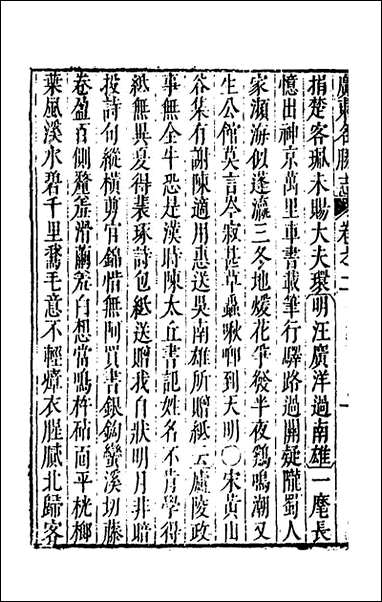 廣東名勝志 卷之二
捐楚客珮未賜大夫環明汪廣洋過南雄一麾長
憶出神京萬里車書載筆行驛路過關疑隴蜀人
家瀕海似蓬瀛三冬地煖花爭發半夜鷄鳴潮又
生公館莫言岑寂甚草蟲啾唧到天明〇宋黃山
谷集有謝陳適用惠送吳南雄所贈紙云廬陵政
事無全牛恐是漢時陳太丘書記姓名不肯學得
紙無異夏得裘琢詩包紙送贈我自狀明月非暗
投詩句縱橫剪官錦惜無阿買書銀鉤蠻溪切藤
卷盈百側釐羞滑繭羞白想當鳴杵砧面平桄榔
葉風溪水碧千里鵞毛意不輕瘴衣腥膩北歸客